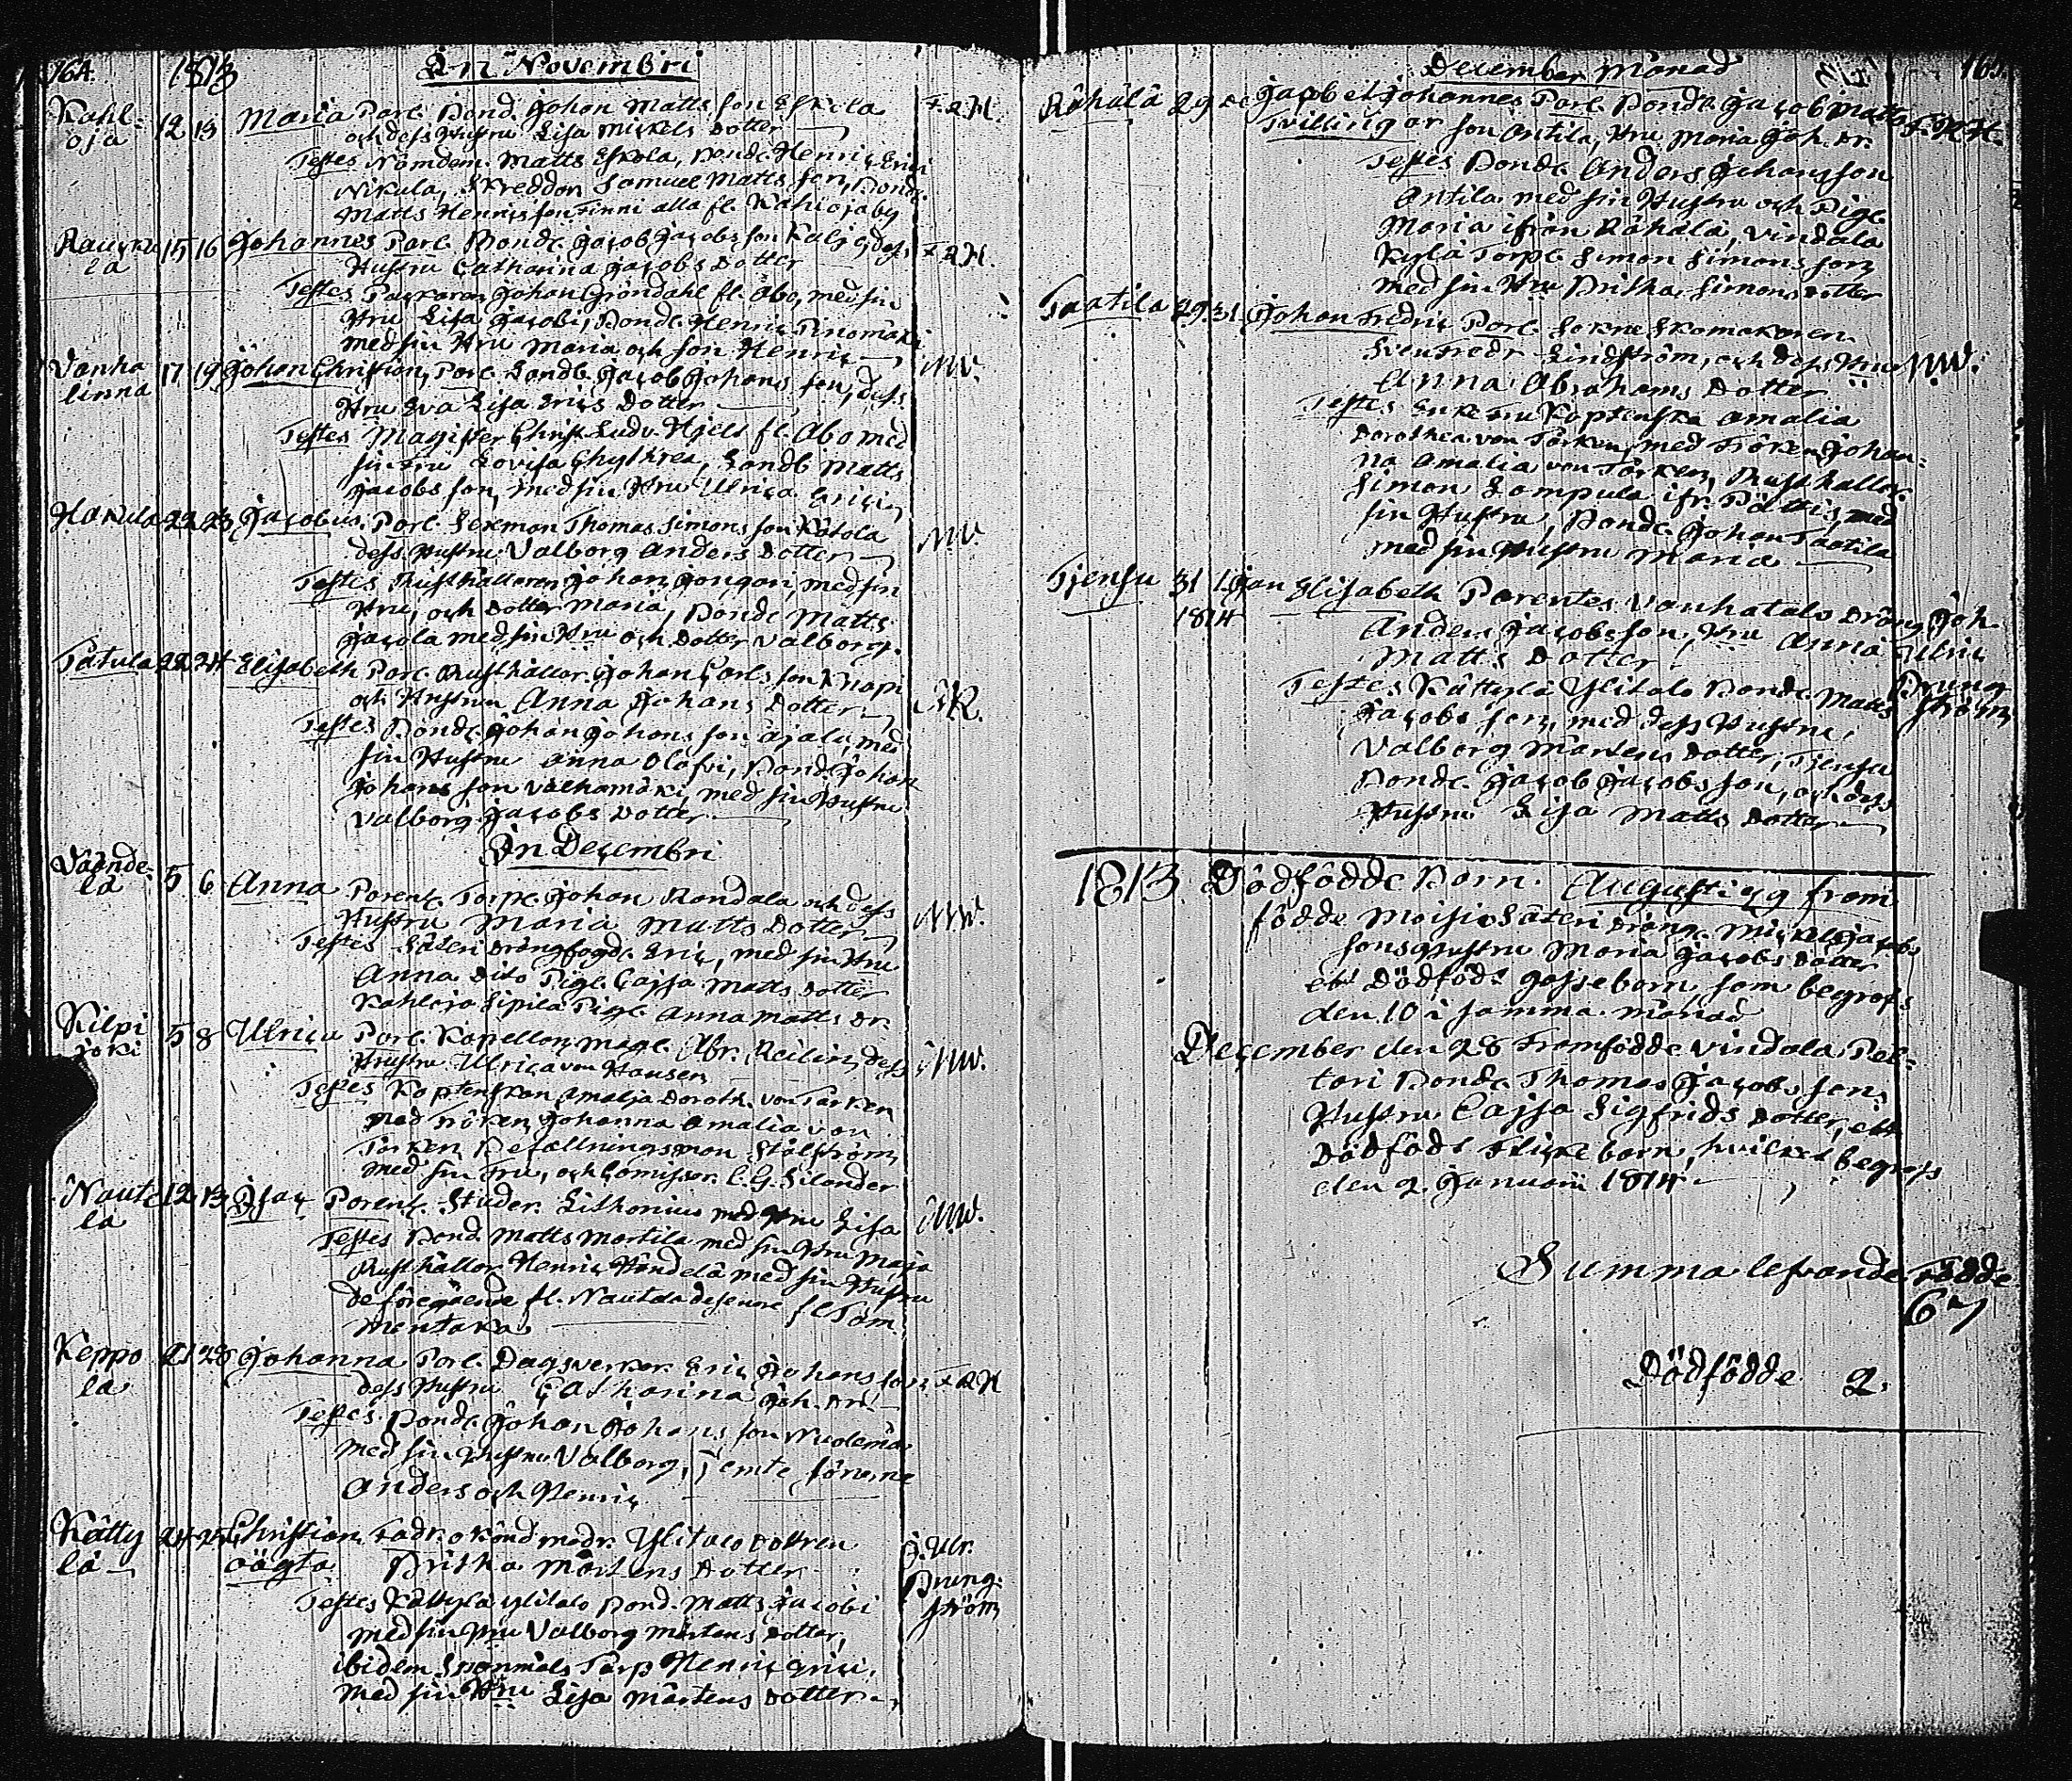 164. 1813 In Novembri
Kahl- 12 13 Maria Par. Bond. Johan Matts son Eskola F.R.H.
oja och dess Hustru Lisa Mickels Dotter
Testes Nämdem. Matts Eskola, Bond. Henric Erici
Nikula, Skreddon Samuel Matts son, Bond.
Matts Henrics son Finni alla fr. Kahlojaby
15 16 Johannes Par. Bond. Jacob Jacobs son dess F.R.H.
la Hustru Catharina Jacobs Dotter
Testes Johan Gröndahl fr. Åbo, med sin
Hru Lisa Jacobi, Bond. Henric Pinomäki
med sin Hru Maria och son Henric
Vanha 17 19 Johan Christian, Par. Landb. Jacob Johans son, dess NW.
linna Hru Eva Lisa Erics Dotter
Testes Magister Christ. Ludv. Hjelt fr. Åbo med
sin Fru Lovisa Chythrea, Landb. Matts
Jacobs son, med sin Hru Ulrica Erici
22 23 Jacobus. Par. Sexman Thomas Simons son NW
dess Hustru Valborg Anders Dotter
Testes Rusthållaren Johan med sin
Hru, och Dotter Maria, Bond. Matts
Jacola med sin Hru och Dotter Valborg.
Patula 22 24 Elisabeth Par. Rusthållar. Johan Carls son Knapi
och Hustru Anna Johans Dotter
Testes Bond. Johan Johans son Äjälä, med
sin Hustru Anna Olofri, Bond. Johan
Johans son Valhamäki med sin Hustru
Valborg Jacobs Dotter
In Decembri
Väände- 5 6 Anna Parent. Torp. Johan Randala och dess NW.
lä Hustru Maria Matts Dotter
Testes Säteri Drängfogd. Eric, med sin Hru
Anna Dito Pig. Cajsa Matts Dotter
Kahloja Sipilä Pig. Anna Matts Dr.
Kilpi 5 8 Ulrica Par. Kapellan Mag. Abr. Reilin, dess NW.
joki Hustru Ulrica von Hausen
Testes Kaptenskan Amalja Doroth. von Torken
med Fröken Johanna Amalia von
Torken, Befallningsman Stålström
med sin Fru, och Comissar. C.G. Silander
Naute 12 13 Isac Parent. Studer. Lithonius med Hru Lisa NW.
la Testes Bond. Matts Martila med sin Hru Maja
Rusthållar. Henric Händelä med sin Hustru
de föregående fr. Nautala de senare fr. Tam
mentaka
Keppo 21 28 Johanna Par. Dagsverkar. Eric Johans son F.R.H
la dess Hustru Catharina Joh. Dr.
Testes Bond. Johan Johans son
med sin Hustru Valborg, jemte sönerne
Anders och Henric
Kätty 24 25 Christian Fadr. okänd modr. Ylitalo Dottren J. Ulr.
lä oägta Britha Mårtens Dotter Brung-
Testes Kättylä Ylitalo Bond. Matts Jacobi ström
med sin Hru Valborg Mårtens Dotter,
ibidem Torp Henric Erici,
med sin Hru Lisa Mårtens Dotter
December Månad 1813 165.
Rähälä 29 Jacob et Johannes Par. Bond. Jacob Matts F.R.H.
Tvillingar son Antila, Hru Maria Joh. Dr.
Testes Bond. Anders Johansson
Antila med sin Hustru och Pig.
Maria ifrån Rähälä, Vindala
Kylä Torp. Simon Simons son
med sin Hru Britha Simons Dotter
Taatila 29 31 Johan Fredric Par. Sockne Skomakaren
Sven Fredr. Lindström, och dess Hru NW.
Anna Abrahams Dotter
Testes Enke Fru Kaptenska Amalia
Dorothea von Torken med Fröken Johan-
na Amalia von Torken, Rusthållar.
Simon Lampula ifr. Pättis, med
sin Hustru, Bond. Johan Taatila
med sin Hustru Maria
Tjensu 31 1 Jan Elisabeth Parentes Vanhatalo Dräng Joh.
1814 Anders Jacobsson, Hru Anna Ulric
Matts Dotter Brung
Testes Kättylä Ylitalo Bond. Matts ström
Jacobs son, med dess Hustru,
Valborg Mårtens Dotter, Tjensu
Bond. Jacob Jacobs son, och dess
Hustru Lisa Matts Dotter
1813 Dödfödde Barn. Augusti 9 fram
födde Moisio Säteri Dräng. Mickel Jacobs
sons Hustru Maria Jacobs Dotter
ett Dödfödt gossebarn som begrofs
den 10 i samma månad
December den 28 Framfödde Vindala Pel-
tari Bond. Thomas Jacobs sons
Hustru Cajsa Sigfrids Dotter, ett
Dödfödt Flickebarn, hvilket begrofs
den 2 Januari 1814
Summa lefvande Födde
67
Dödfödde 2.